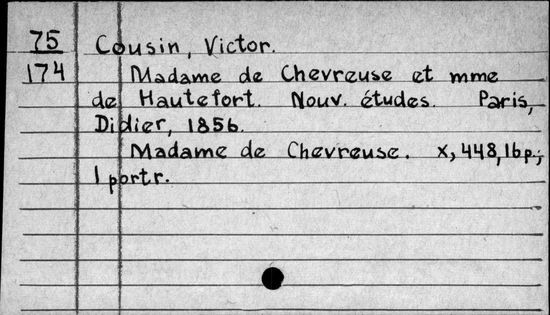 75 Cousin, Victor.
174 Madame de Chevreuse et mme
de Hautefort. Nouv. études. Paris,
Didier, 1856.
Madame de Chevreuse. x, 448, 16 p.;
1 portr.